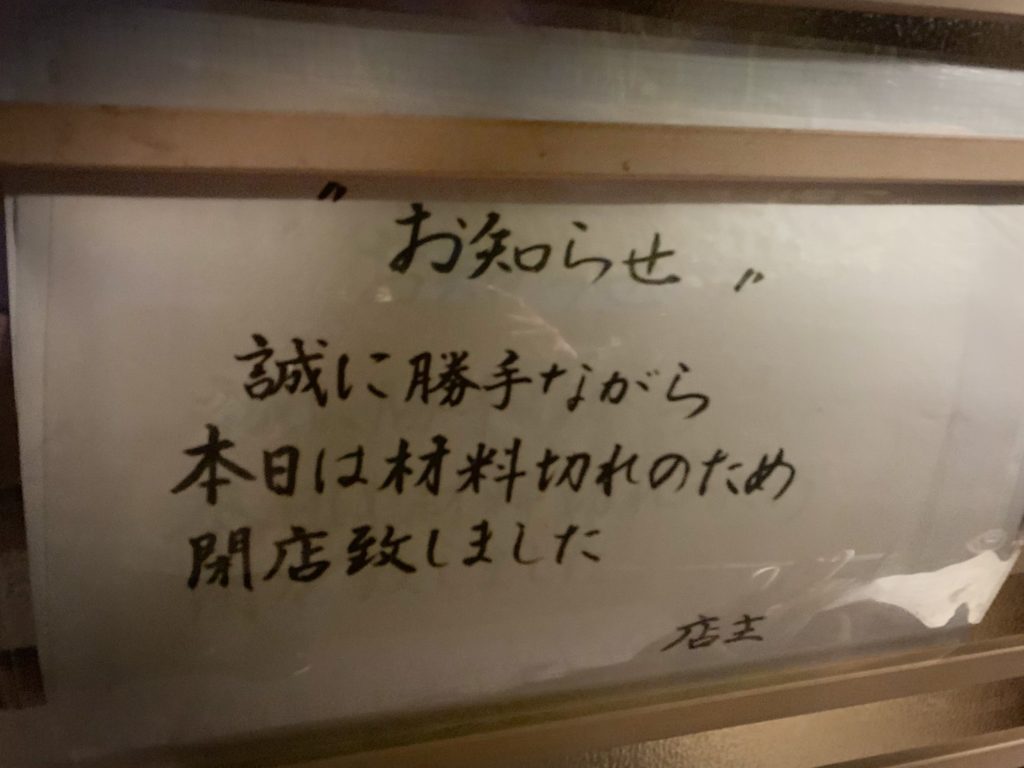 〃お知らせ〃
誠に勝手ながら
本日は材料切れのため
閉店致しました
店主